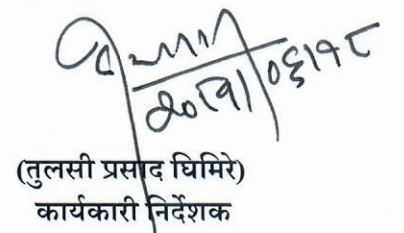 २०८१/०६/१८
(तुलसी प्रसाद घिमिरे)
कार्यकारी निर्देशक